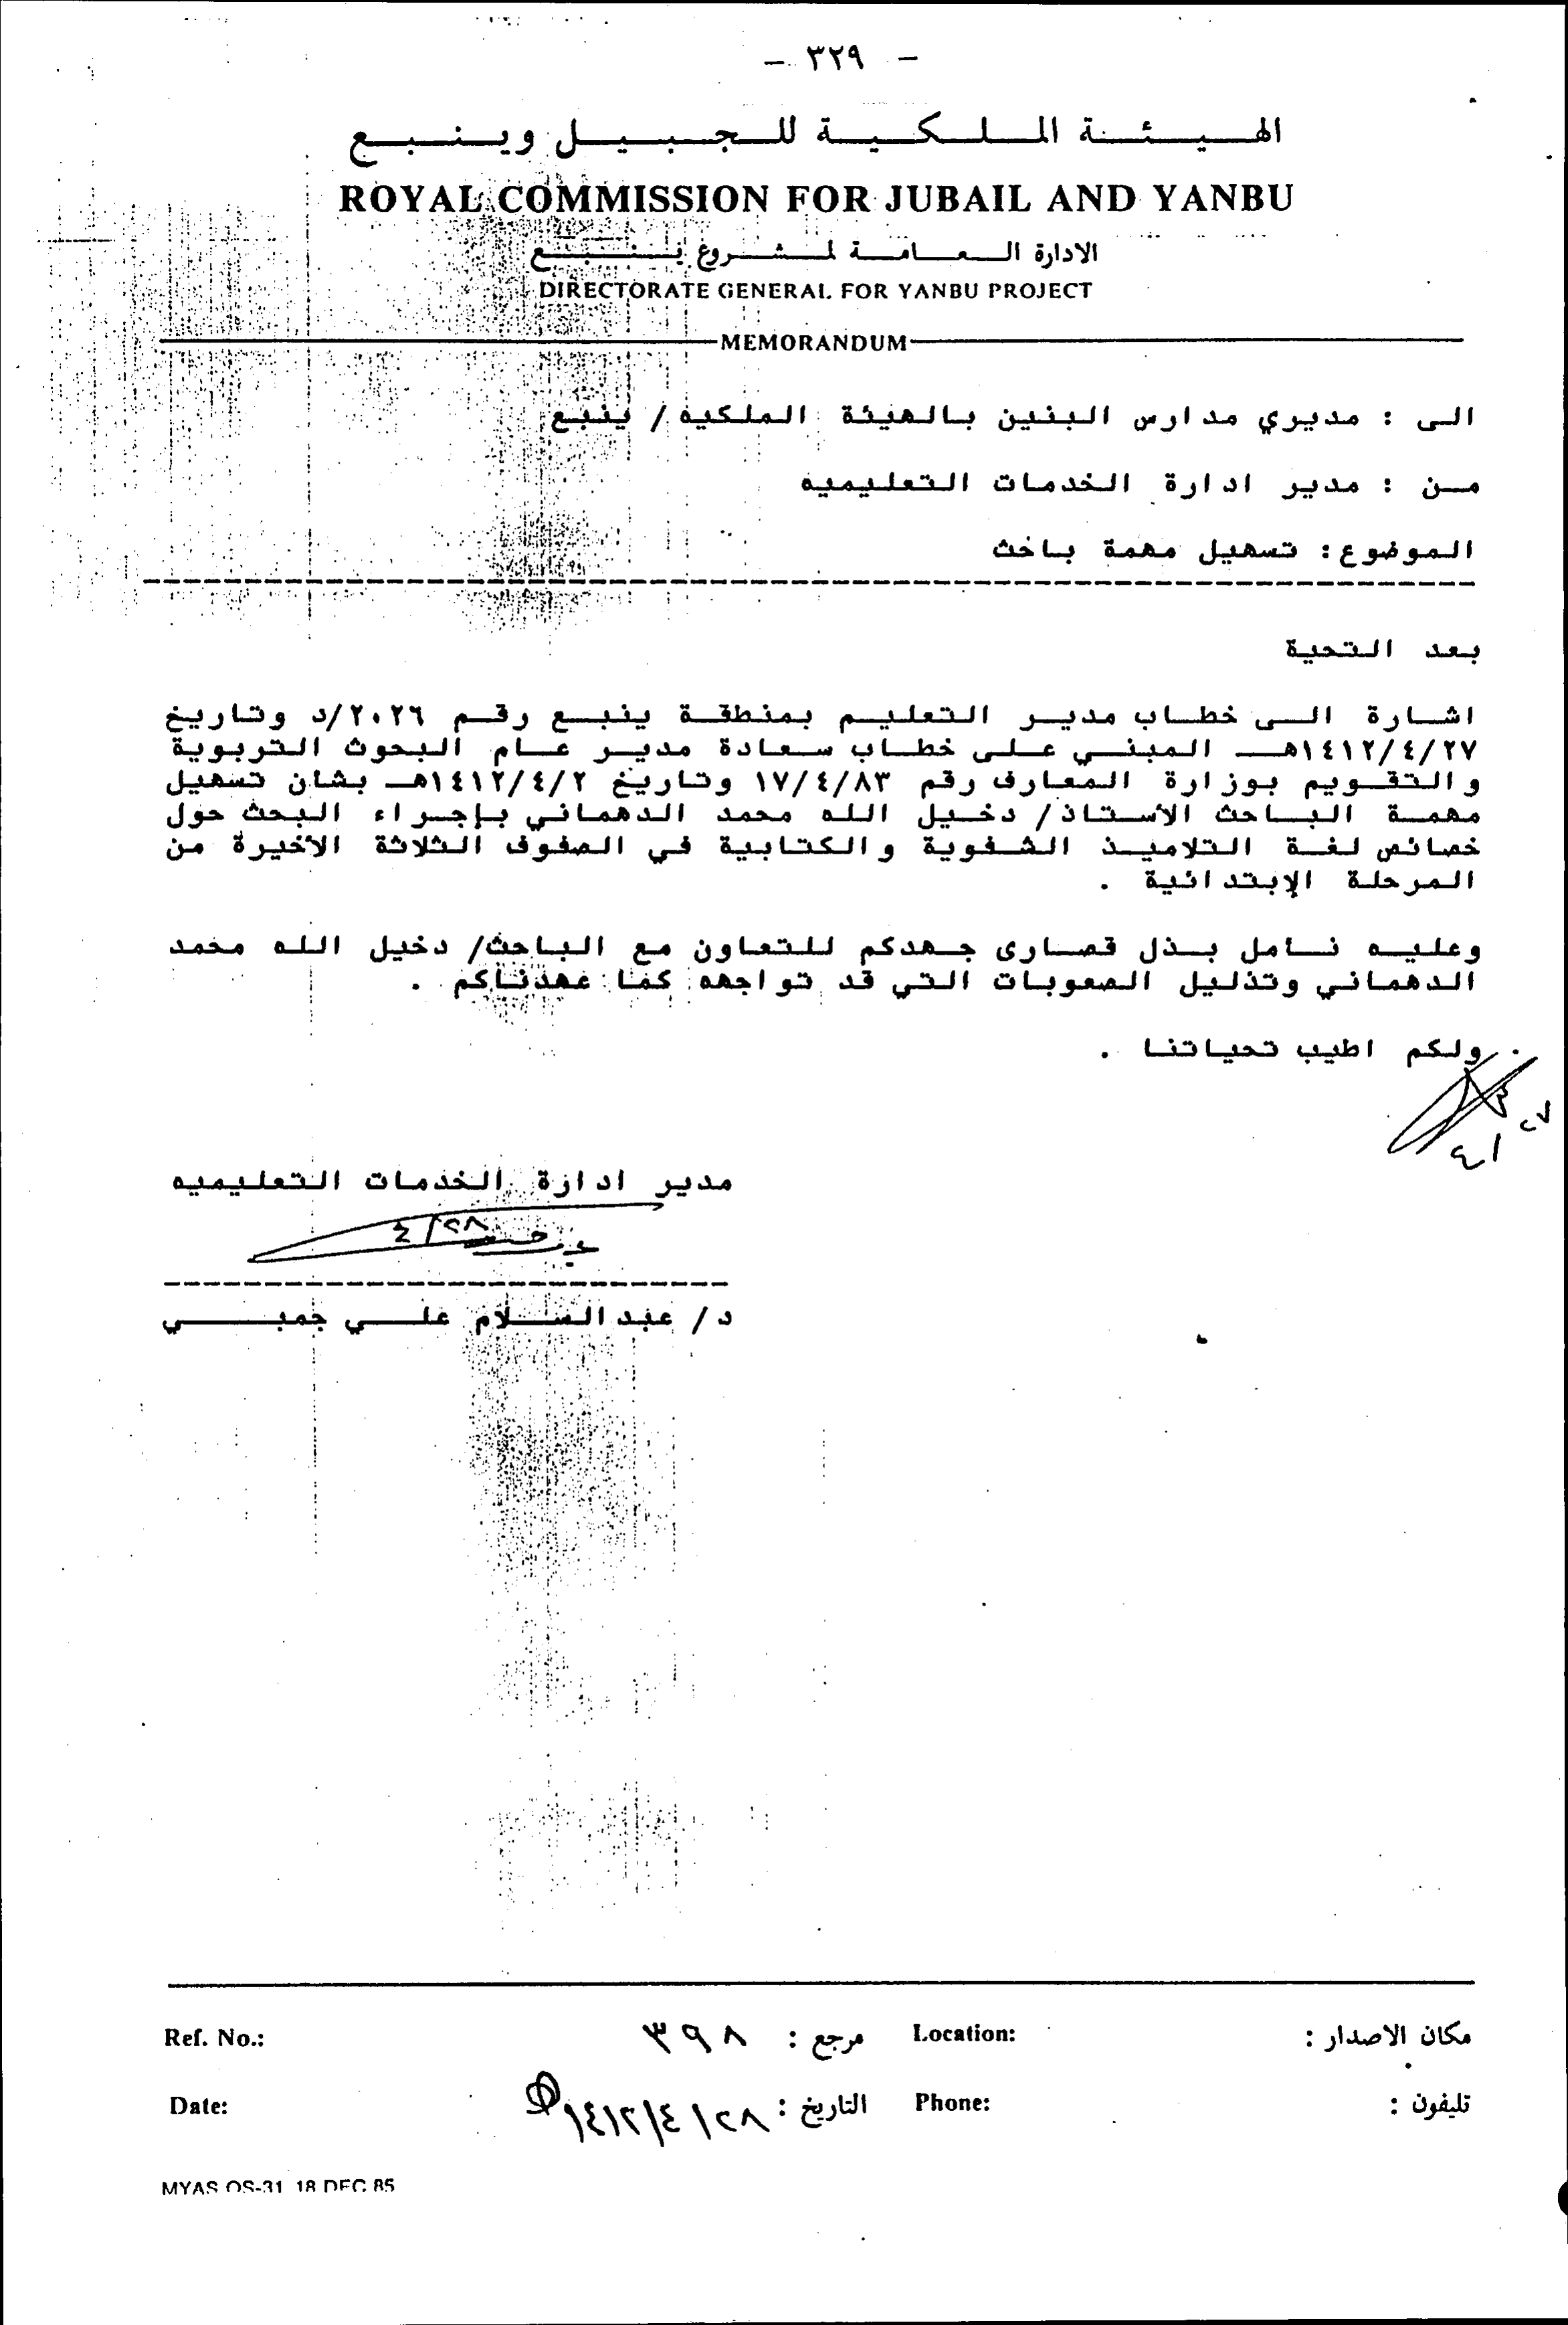 - ٣٢٩ -
الهيئة الملكية للجبيل وينبع
ROYAL COMMISSION FOR JUBAIL AND YANBU
الادارة العامة لمشروع ينبع
DIRECTORATE GENERAL FOR YANBU PROJECT
MEMORANDUM
الى : مديري مدارس البنين بالهيئة الملكيه / ينبع
من : مدير ادارة الخدمات التعليميه
الموضوع : تسهيل مهمة باحث
بعد التحية
اشارة الى خطاب مدير التعليم بمنطقة ينبع رقم ٢٠٢٦/د وتاريخ
١٤١٢/٤/٢٧هـ المبني على خطاب سعادة مدير عام البحوث التربوية
والتقويم بوزارة المعارف رقم ١٧/٤/٨٣ وتاريخ ١٤١٢/٤/٢هـ بشان تسهيل
مهمة الباحث الأستاذ/ دخيل الله محمد الدهماني بإجراء البحث حول
خصائص لغة التلاميذ الشفوية والكتابية في الصفوف الثلاثة الأخيرة من
المرحلة الإبتدائية .
وعليه نامل بذل قصارى جهدكم للتعاون مع الباحث/ دخيل الله محمد
الدهماني وتذليل الصعوبات التي قد تواجهه كما عهدناكم .
ولكم اطيب تحياتنا .
٤/٢٧
مدير ادارة الخدمات التعليميه
٤/٢٨
د/ عبد السلام علي جمبي
مكان الاصدار : Location: مرجع : ٣٩٨ Ref. No.:
تليفون : Phone: التاريخ : ١٤١٢/٤/٢٨ Date:
MYAS OS-31 18 DEC 85